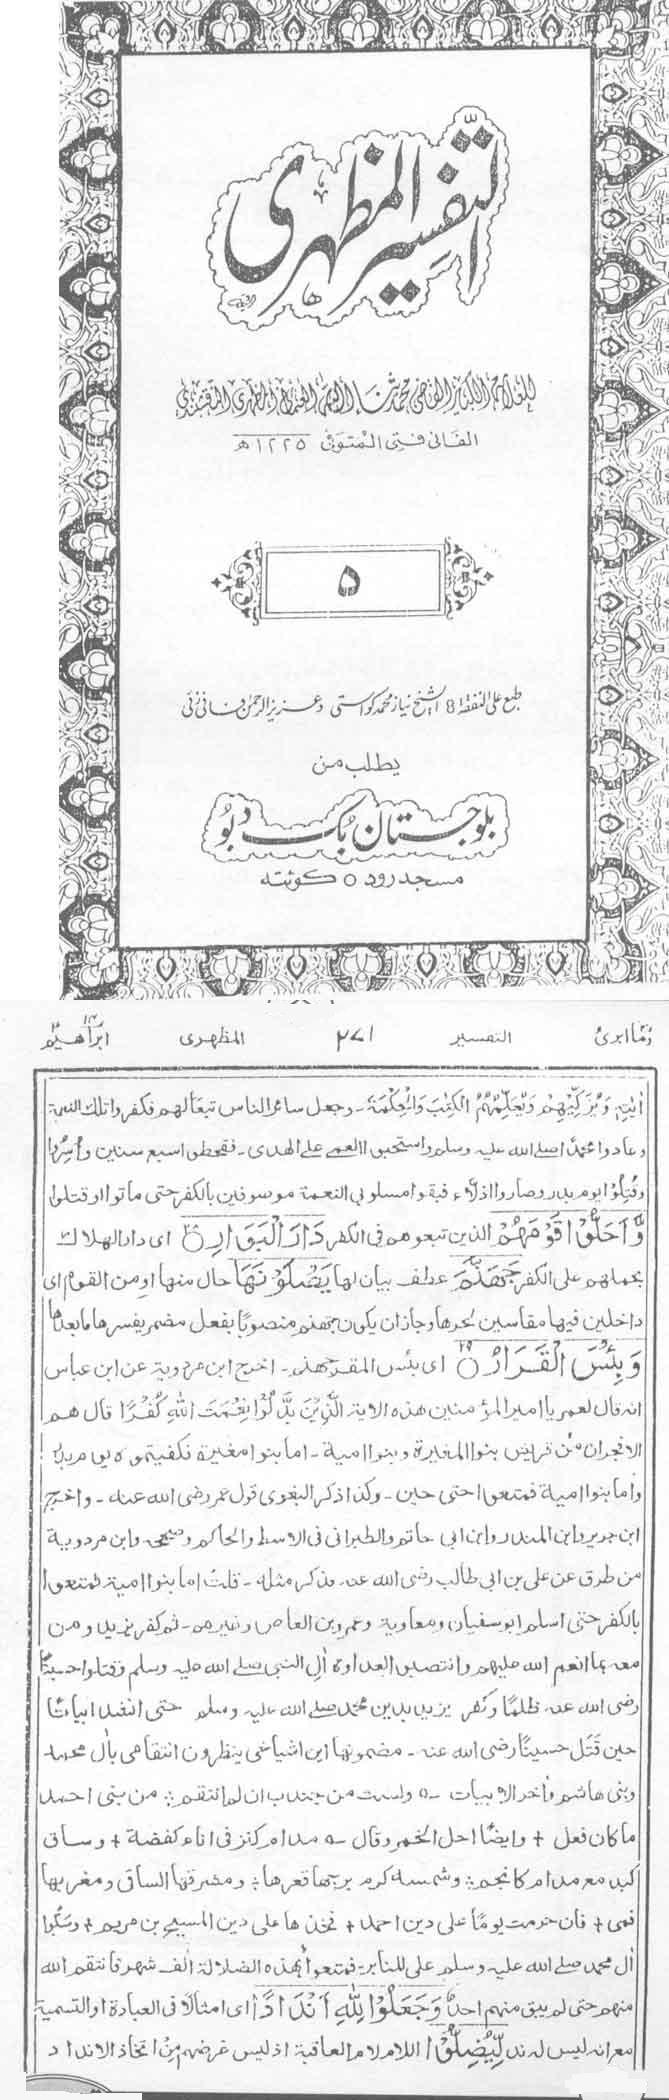 التفسير المظهرى
للعلامة الكبير القاضى محمد ثناء الله العثمانى المظهرى النقشبندى
الفانى فتى المتوفى ١٢٢٥ھ
٥
طبع على نفقة الشيخ نياز محمد كواستى و عزيز الرحمن
يطلب من
بلوچستان بُک ڈپو
مسجد رود ٥ كوئٹه
وما ابرئ التفسير ٢٧١ المظهرى ابراهيم
اٰيٰتِهٖ وَيُزَكِّيهِمْ وَيُعَلِّمُهُمُ الْكِتٰبَ وَالْحِكْمَةَ ۔ وجعل سائر الناس تبعًا لهم فكفروا تلك النعمة
وعادوا محمدًا صلى الله عليه وسلم واستحبوا العمى على الهدى ۔ فقحطوا سبع سنين وأُسِرُوا
وقُتِلُوا يوم بدر وصاروا اذلاء فبقوا مسلوبى النعمة موصوفين بالكفر حتى ماتوا او قتلوا
وَّاَحَلُّوْا قَوْمَهُمْ الذين تبعوهم فى الكفر دَارَ الْبَوَارِ ۝ ٢٨ اى دار الهلاك
بحملهم على الكفر جَهَنَّمَ عطف بيان لها يَصْلَوْنَهَا حال منها او من القوم اى
داخلين فيها مقاسين لحرها وجاز ان يكون جهنم منصوبًا بفعل مضمر يفسره ما بعدها
وَبِئْسَ الْقَرَارُ ۝ ٢٩ اى بئس المقر جهنم ۔ اخرج ابن مردوية عن ابن عباس
انه قال لعمر يا امير المؤمنين هذه الاية اَلَّذِيْنَ بَدَّلُوْا نِعْمَتَ اللّٰهِ كُفْرًا قال هم
الافجران من قريش بنوا المغيرة وبنوا امية ۔ اما بنوا مغيرة فكفيتموه يوم بدر
واما بنوا امية فمتعوا حتى حين ۔ وكذا ذكر البغوى قول عمر رضى الله عنه ۔ واخرج
ابن جرير وابن المنذر وابن ابى حاتم والطبرانى فى الاوسط والحاكم وصححه وابن مردوية
من طرق عن على بن ابى طالب رضى الله عنه فذكر مثله ۔ قلت اما بنوا امية فمتعوا
بالكفر حتى اسلم ابو سفيان ومعاوية وعمرو بن العاص وغيرهم ۔ ثم كفر يزيد ومن
معه بما انعم الله عليهم وانتصبوا العداوة اٰل النبى صلى الله عليه وسلم وقتلوا حسينًا
رضى الله عنه ظلمًا وكفر يزيد بدين محمد صلى الله عليه وسلم حتى انشد ابياتًا
حين قَتَل حسينًا رضى الله عنه ۔ مضمونها اين اشياخى ينظرون انتقامى باٰل محمد
وبنى هاشم واٰخر الابيات ۔ ولست من جندب ان لم انتقم ؞ من بنى احمد
ما كان فعل + وايضًا احل الخمر وقال ۔ مدام كنز فى اناء كفضة + وساق
كبدر مع مدام كانجم ؞ وشمسه كرم برجها قعرها ؞ ومشرقها الساقى ومغربها
فمى + فان حرمت يومًا على دين احمد + فخذها على دين المسيح بن مريم + وسَبُّوا
اٰل محمد صلى الله عليه وسلم على المنابر ۔ فمتعوا بهذه الضلالة الف شهر فانتقم الله
منهم حتى لم يبق منهم احد وَجَعَلُوْا لِلّٰهِ اَنْدَادًا اى امثالًا فى العبادة او التسمية
مع انه ليس له ند لِّيُضِلُّوْا اللام لام العاقبة اذ ليس غرضهم من اتخاذ الانداد